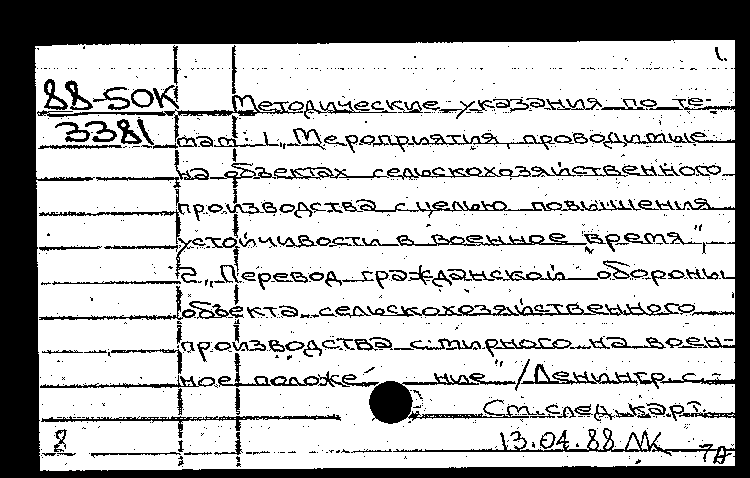 1.
88-50К Методические указания по те-
3381 мам: 1„Мероприятия, проводимые
на объектах сельскохозяйственного
производства с целью повышения
устойчивости в военное время",
2„Перевод гражданской обороны
объекта сельскохозяйственного
производства с мирного на воен-
ное положение"/Ленингр. с.-
См. след. карт.
8 13.04.88 МК 7А